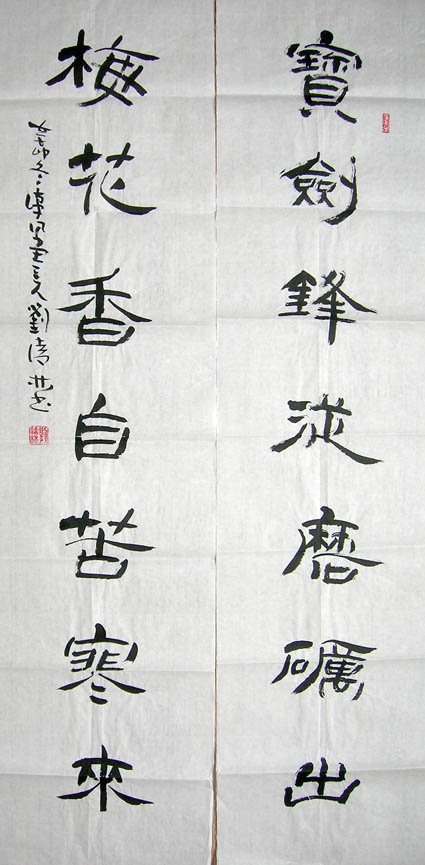 寶劍鋒從磨礪出
梅花香自苦寒來
辛卯冬
劉清
书